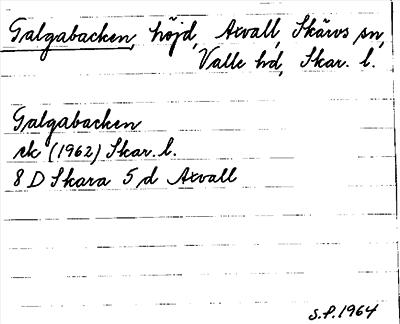 Galgabacken, höjd, Axvall, Skärvs sn,
Valle hd, Skar. l.
Galgabacken
rk (1962) Skar. l.
8 D Skara 5 d Axvall
S.P. 1964